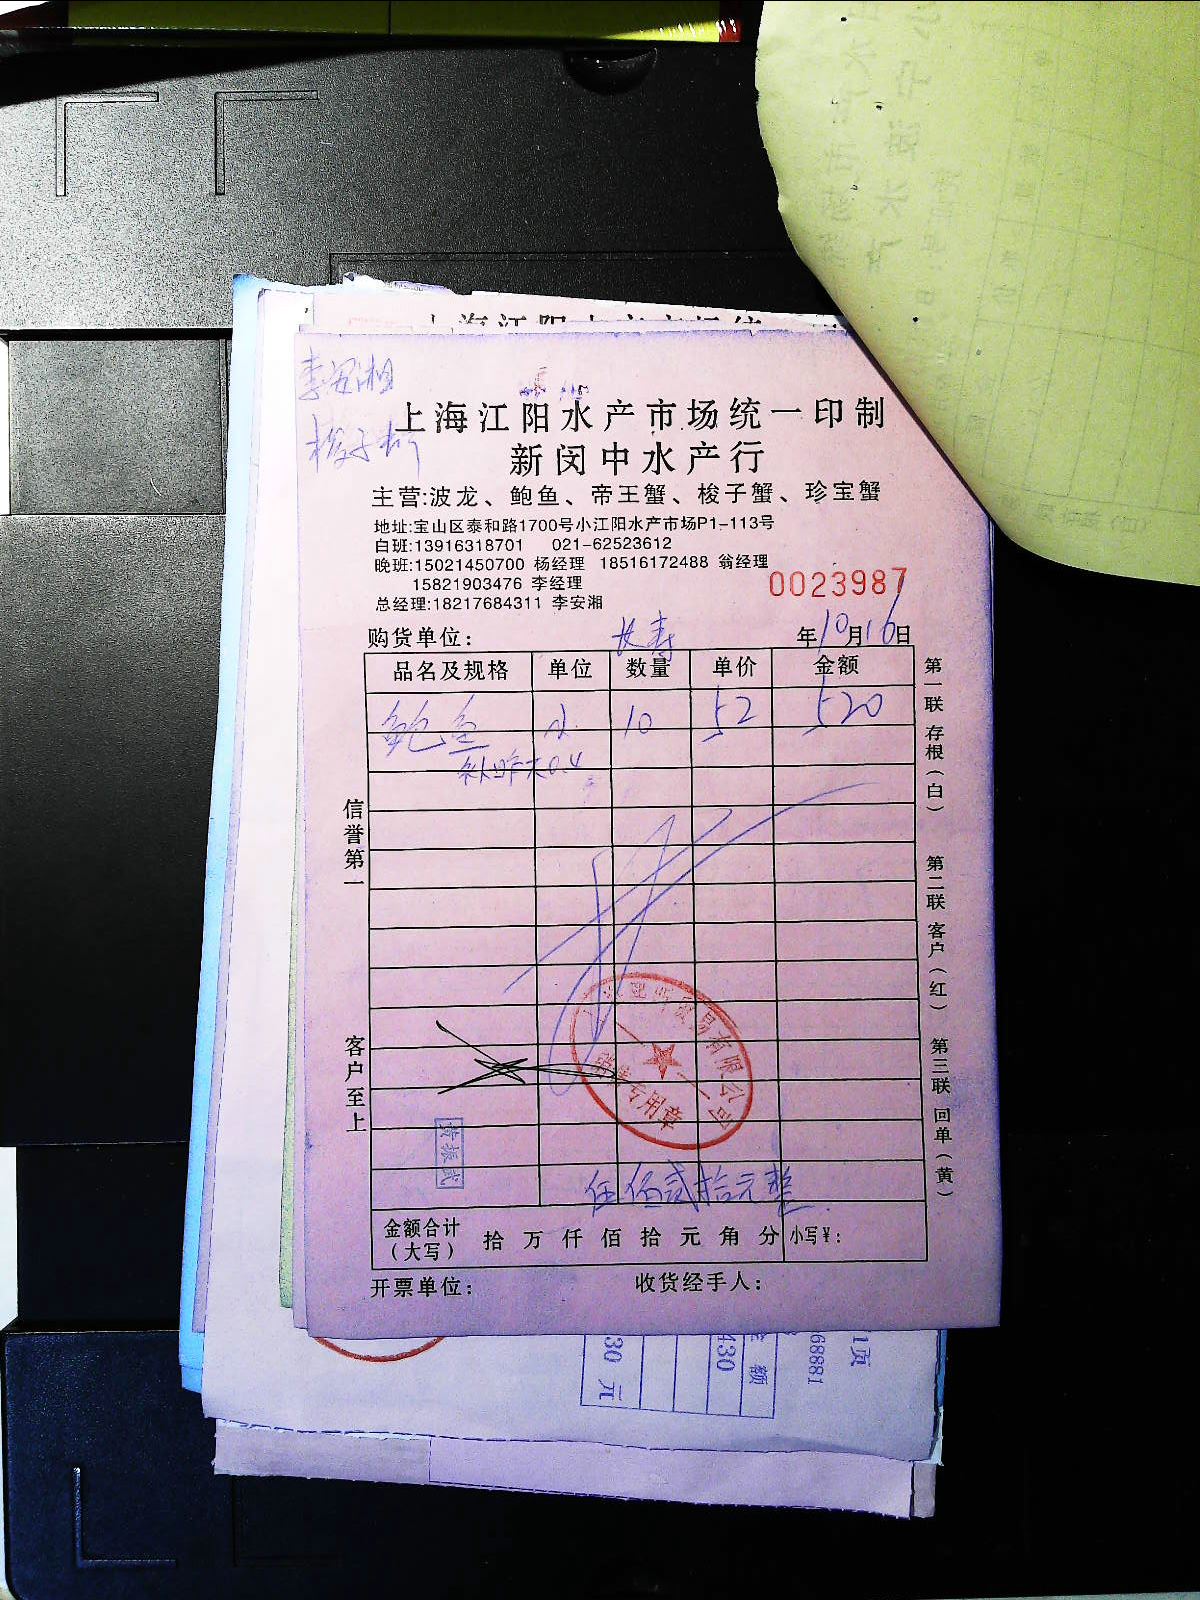 李安湘
梭子蟹
上海江阳水产市场统一印制
新闵中水产行
主营:波龙、鲍鱼、帝王蟹、梭子蟹、珍宝蟹
地址:宝山区泰和路1700号小江阳水产市场P1-113号
白班:13916318701 021-62523612
晚班:15021450700 杨经理 18516172488 翁经理
15821903476 李经理
总经理:18217684311 李安湘
0023987
购货单位: 长寿 年10月16日
品名及规格 单位 数量 单价 金额
鲍鱼 小 10 52 520
补昨天0.4
信誉第一
客户至上
第一联 存根(白)
第二联 客户(红)
第三联 回单(黄)
贸易有限公司
销售专用章
黄振武
伍佰贰拾元整
金额合计(大写) 拾 万 仟 佰 拾 元 角 分 小写¥:
开票单位: 收货经手人:
1页
68881
金额
430
30 元